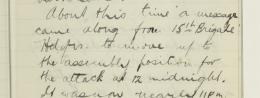 About this time a message
came along from 15th Brigade
Hdqrs. to move up to
the assembly position for
the attack at 12 midnight.
It was now nearly 11pm